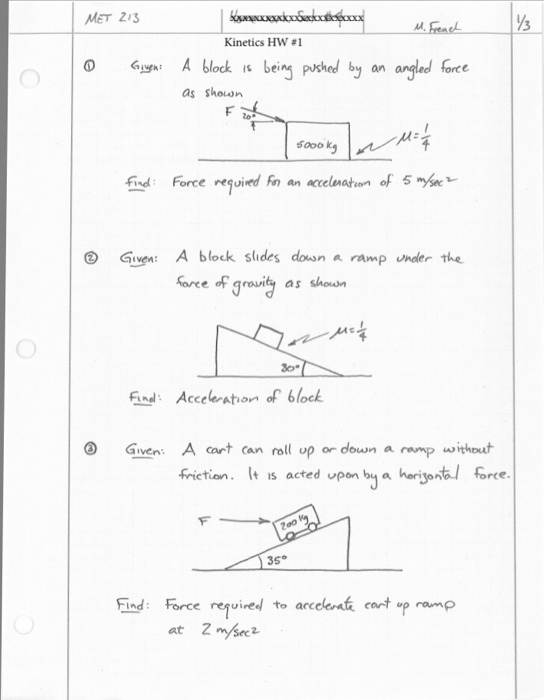 MET 213
M. French
1/3
Kinetics HW #1
① Given: A block is being pushed by an angled force
as shown
F
20°
5000 kg
μ=1/4
Find: Force required for an acceleration of 5 m/sec²
② Given: A block slides down a ramp under the
force of gravity as shown
μ=1/4
30°
Find: Acceleration of block
③ Given: A cart can roll up or down a ramp without
friction. It is acted upon by a horizontal force.
F
200 kg
35°
Find: Force required to accelerate cart up ramp
at 2 m/sec²